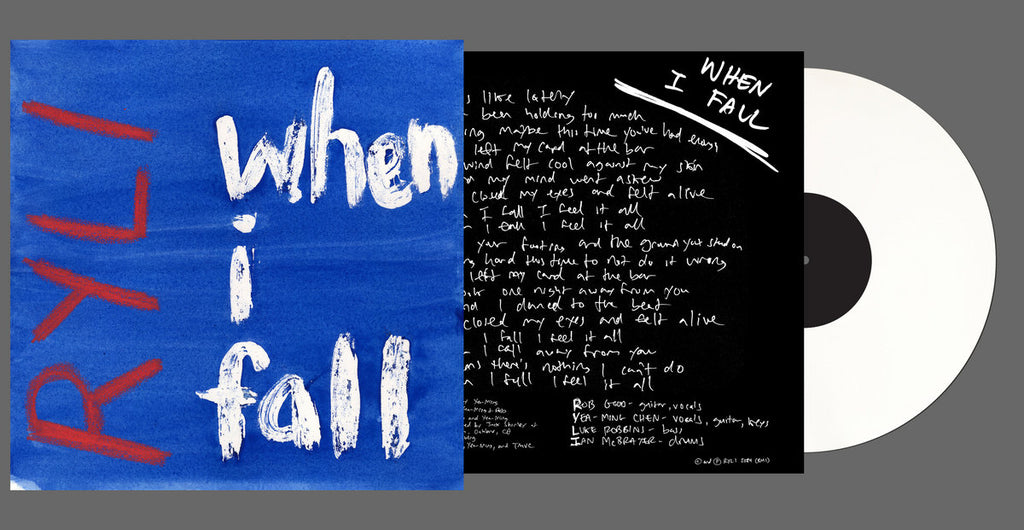 RYLI
when
i
fall
WHEN
I FALL
like lately
been holding too much
maybe this time you've had enough
left my card at the bar
wind felt cool against my skin
my mind went askew
closed my eyes and felt alive
I fall I feel it all
I fall I feel it all
your footing and the ground you stand on
hard this time to not do it wrong
left my card at the bar
one night away from you
I danced to the beat
closed my eyes and felt alive
I fall I feel it all
I fall away from you
there's nothing I can't do
I fall I feel it all
Yea-Ming
Yea-Ming & Rob
and Yea-Ming
by Jack Shirley at
Oakland, CA
Yea-Ming, and
ROB GOOD - guitar, vocals
YEA-MING CHEN - vocals, guitar, keys
LUKE ROBBINS - bass
IAN McBRAYER - drums
© and ℗ RYLI 2024 (BMI)